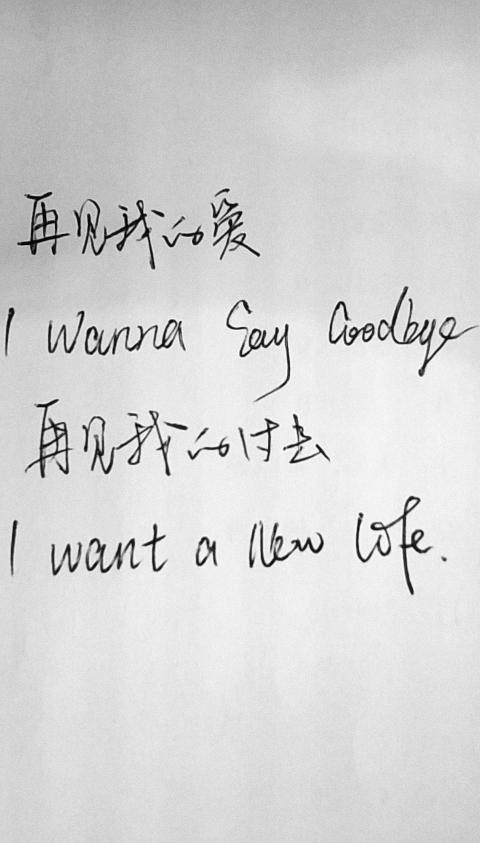 再见我的爱
I wanna Say Goodbye
再见我的过去
I want a New life.